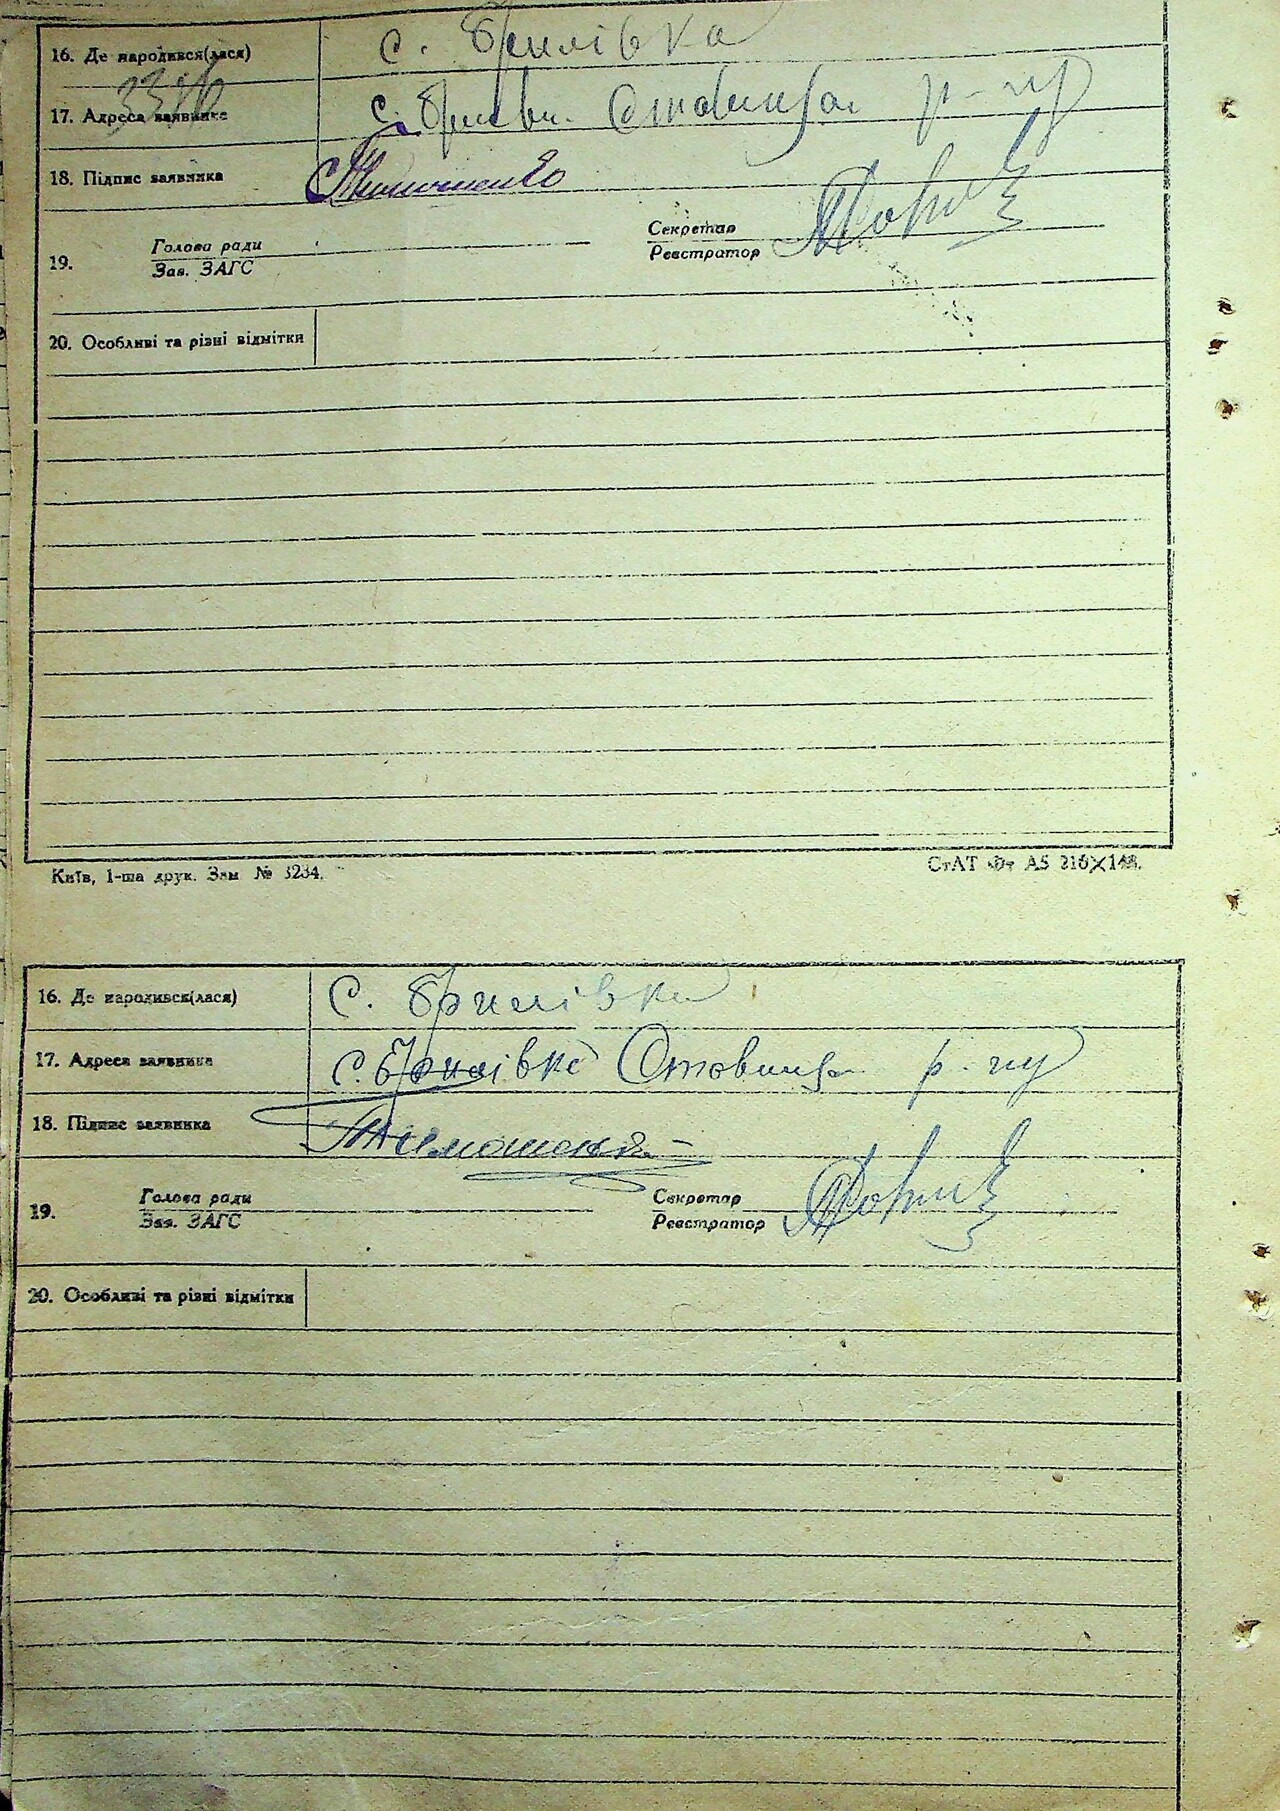 16. Де народився(лася) с. Брилівка
17. Адреса заявника с. Ставищан. р-ну
18. Підпис заявника Тимошенко
Голова ради Секретар
19.
Зав. ЗАГС Реєстратор
20. Особливі та різні відмітки
Київ, 1-ша друк. Зам № 3234. СтАТ Фт А5 210×148.
16. Де народився(лася) с. Брилівка
17. Адреса заявника с. Брилівка р-ну
18. Підпис заявника Тимошенко
Голова ради Секретар
19.
Зав. ЗАГС Реєстратор
20. Особливі та різні відмітки